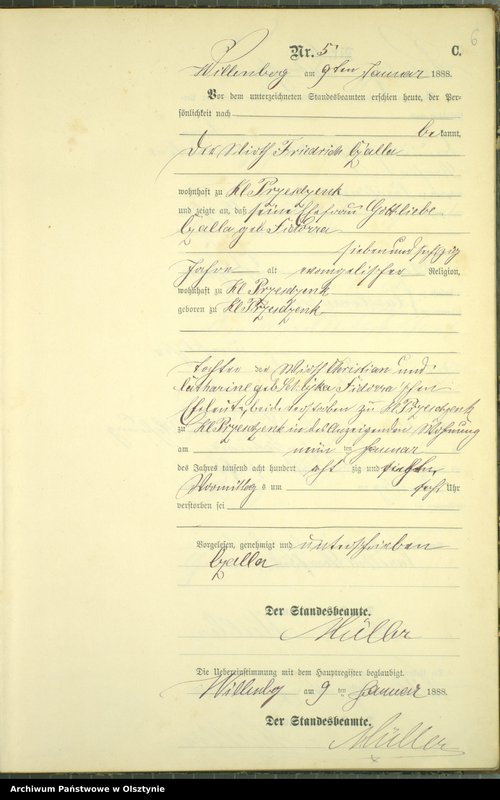 6
Nr. 5. C.
Willenberg am 9ten Januar 1888.
Vor dem unterzeichneten Standesbeamten erschien heute, der Per-
sönlichkeit nach
bekannt,
Der Wirth Friedrich Czalla
wohnhaft zu Kl Przesdzenk
und zeigte an, daß seine Ehefrau Gottliebe
Czalla geb Fidorra
sieben und sechzig
Jahre alt evangelischer Religion,
wohnhaft zu Kl Przesdzenk
geboren zu Kl Przesdzenk
Tochter der Wirth Christian und
Catharine geb Fidorra'schen
Eheleute, beide verstorben zu Kl Przesdzenk
zu Kl Przesdzenk in des Anzeigenden Wohnung
am neun ten Januar
des Jahres tausend acht hundert acht zig und
Vormittag s um sechs Uhr
verstorben sei
Vorgelesen, genehmigt und unterschrieben
Czalla
Der Standesbeamte.
Müller
Die Uebereinstimmung mit dem Hauptregister beglaubigt.
Willenbg am 9 ten Januar 1888.
Der Standesbeamte.
Müller
Archiwum Państwowe w Olsztynie